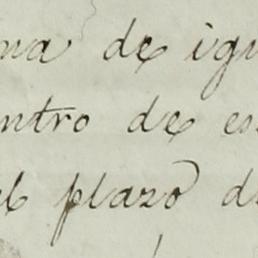 ma de igu
ntro de es
el plazo d